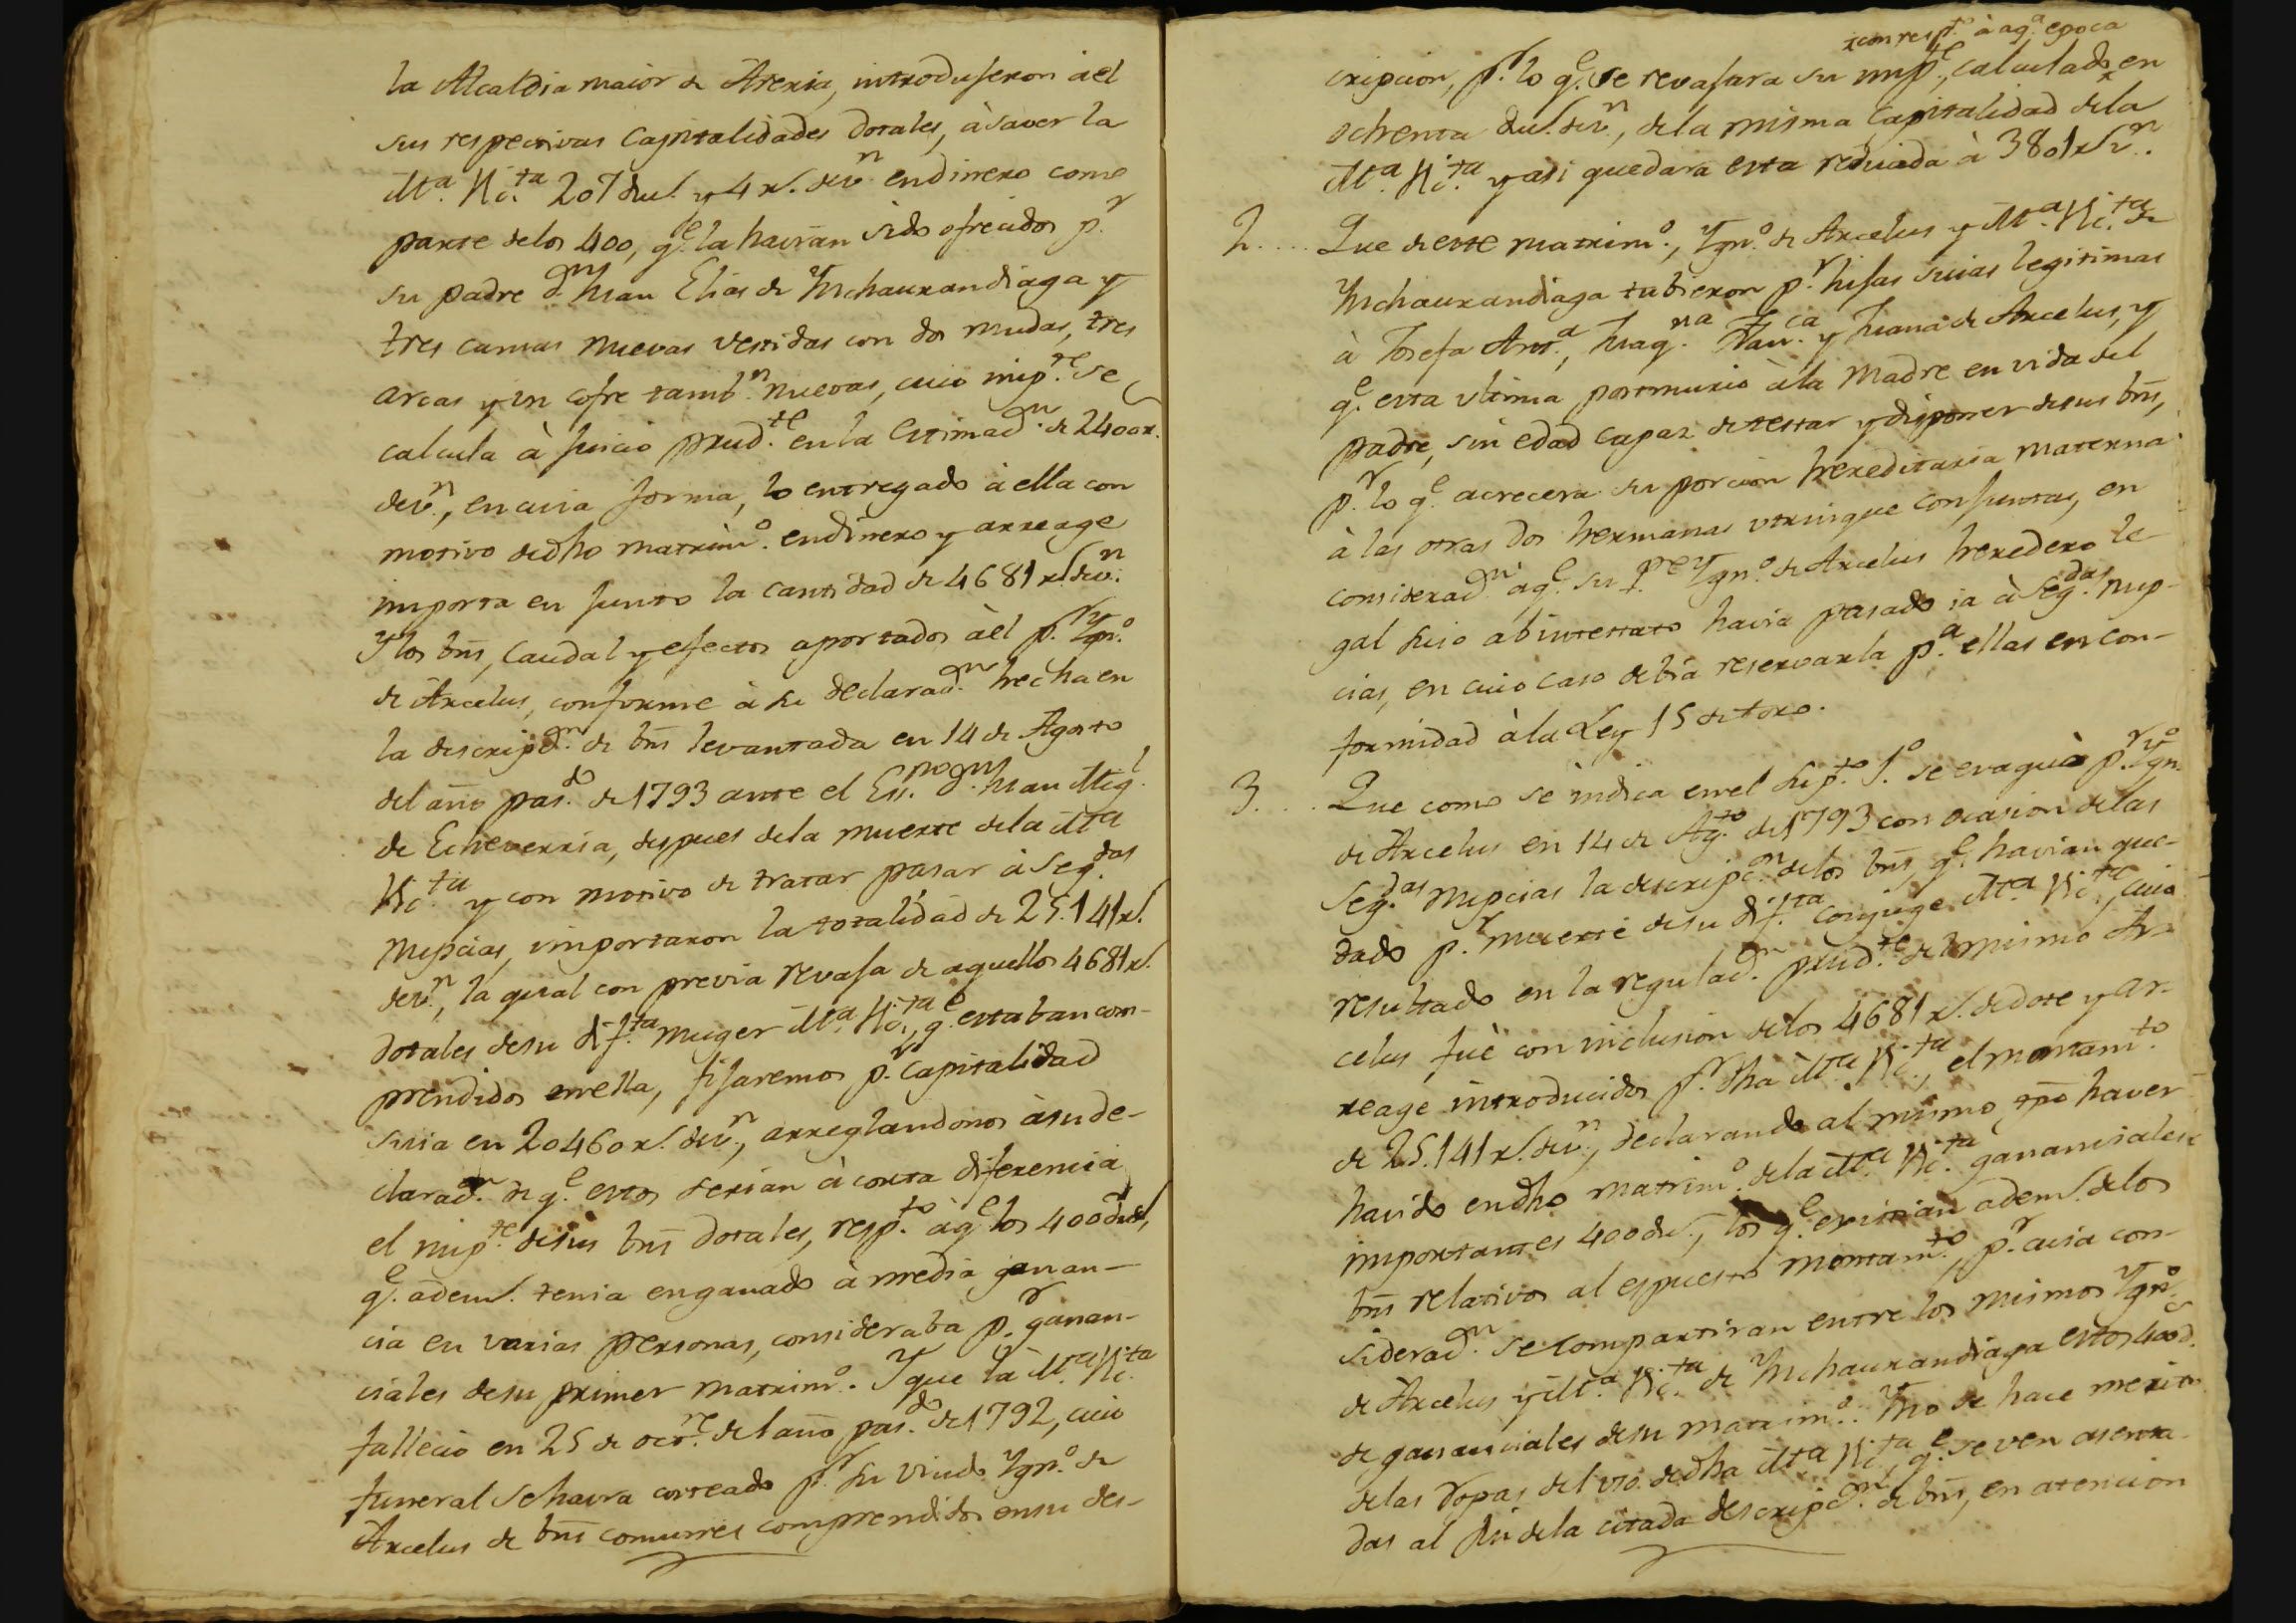 la Alcaldia maior de Areria, introdugeron à el
sus respectivas Capitalidades dotales, à saver la
Ma. Nic.ta 207 duc.s y 4 rs. de v.n en dinero como
parte de los 400, q.e la havian sido ofrecidos p.r
su padre d.n Juan Elias de Ynchaurandiaga y
tres camas nuevas vestidas con dos mudas, tres
arcas y un cofre tamb.n nuevas, cuio imp.te se
calcula à juicio prud.te en la estimac.n de 2400 r.
de v.n, en cuia forma, lo entregado à ella con
motivo de dho matrim.o en dinero y arreage
importa en junto la cantidad de 4681 rs. de v.n
Y los bns, Caudal y efectos aportados à èl p.r Ygn.o
de Arcelus, conforme à su declarac.n hecha en
la descripc.n de bns levantada en 14 de Agosto
del año pas.do de 1793 ante el Ess.no d.n Juan Mig.l
de Echeverria, despues de la muerte de la Ma.
Nic.ta y con motivo de tratar pasar à seg.das
Nupcias, importaron la totalidad de 25.141 rs.
de v.n, la qual con previa revaja de aquellos 4681 rs.
dotales de su dif.ta muger Ma. Nic.ta, q.e estaban com-
prendidos en ella, fijaremos p.r Capitalidad
suia en 20460 rs. de v.n, arreglandonos à su de-
clarac.n de q.e estos serian à corta diferencia
el imp.te de sus bns dotales, resp.to à q.e los 400 duc.s,
q.e adem.s tenia en ganado à media ganan-
cia en varias personas, consideraba p.r ganan-
ciales de su primer matrim.o. Y que la Ma. Nic.ta
fallecio en 25 de oct.re del año pas.do de 1792, cuio
funeral se havra costeado p.r su viudo Ygn.o de
Arcelus de bns comunes comprendidos en su des-
x con resp.to à aq.a epoca
cripcion, p.r lo q.e se revajara su imp.te, calculado x en
ochenta duc.s de v.n, de la misma Capitalidad de la
Ma. Nic.ta y asi quedarà esta reducida à 3801 rs. v.n.
2.... Que de este matrim.o, Ygn.o de Arcelus y Ma. Nic.ta de
Ynchaurandiaga tubieron p.r hijas suias legitimas
à Josefa Ant.a, Juaq.na Fran.ca y Juana de Arcelus, y
q.e esta ultima postmurio à la Madre en vida del
padre, sin edad capaz de testar y disponer de sus bns,
p.r lo q.e acrecera su porcion hereditaria materna
à las otras dos hermanas utrinque conjuntas, en
considerac.n à q.e su p.e Ygn.o de Arcelus heredero le-
gal suio abintestato havia pasado ia à seg.das nup-
cias, en cuio caso debia reservarla p.a ellas en con-
formidad à la Ley 15 de toro.
3.... Que como se indica en el sup.to 1.o se evaquò p.r Ygn.o
de Arcelus en 14 de Ag.to de 1793 con ocasion de las
seg.das nupcias la descripc.n de los bns, q.e havian que-
dado p.r muerte de su dif.ta conjuge Ma. Nic.ta, cuio
resultado en la regulac.n prud.te del mismo Ar-
celus fuè con inclusion de los 4681 rs. de dote y ar-
reage introducidos p.r dha Ma. Nic.ta, el montam.to
de 25.141 rs. de v.n, declarando al mismo tpo haver
havido en dho matrim.o de la Ma. Nic.ta gananciales
importantes 400 du.s, los q.e existian adem.s de los
bns relativos al espuesto montam.to, p.r cuia con-
siderac.n se compartiran entre los mismos Ygn.o
de Arcelus y Ma. Nic.ta de Ynchaurandiaga estos 400 d.s
de gananciales de su matrim.o. Y no se hace merito
de las ropas del uso de dha Ma. Nic.ta, q.e se ven asenta-
das al fin de la citada descripc.n de bns, en atencion